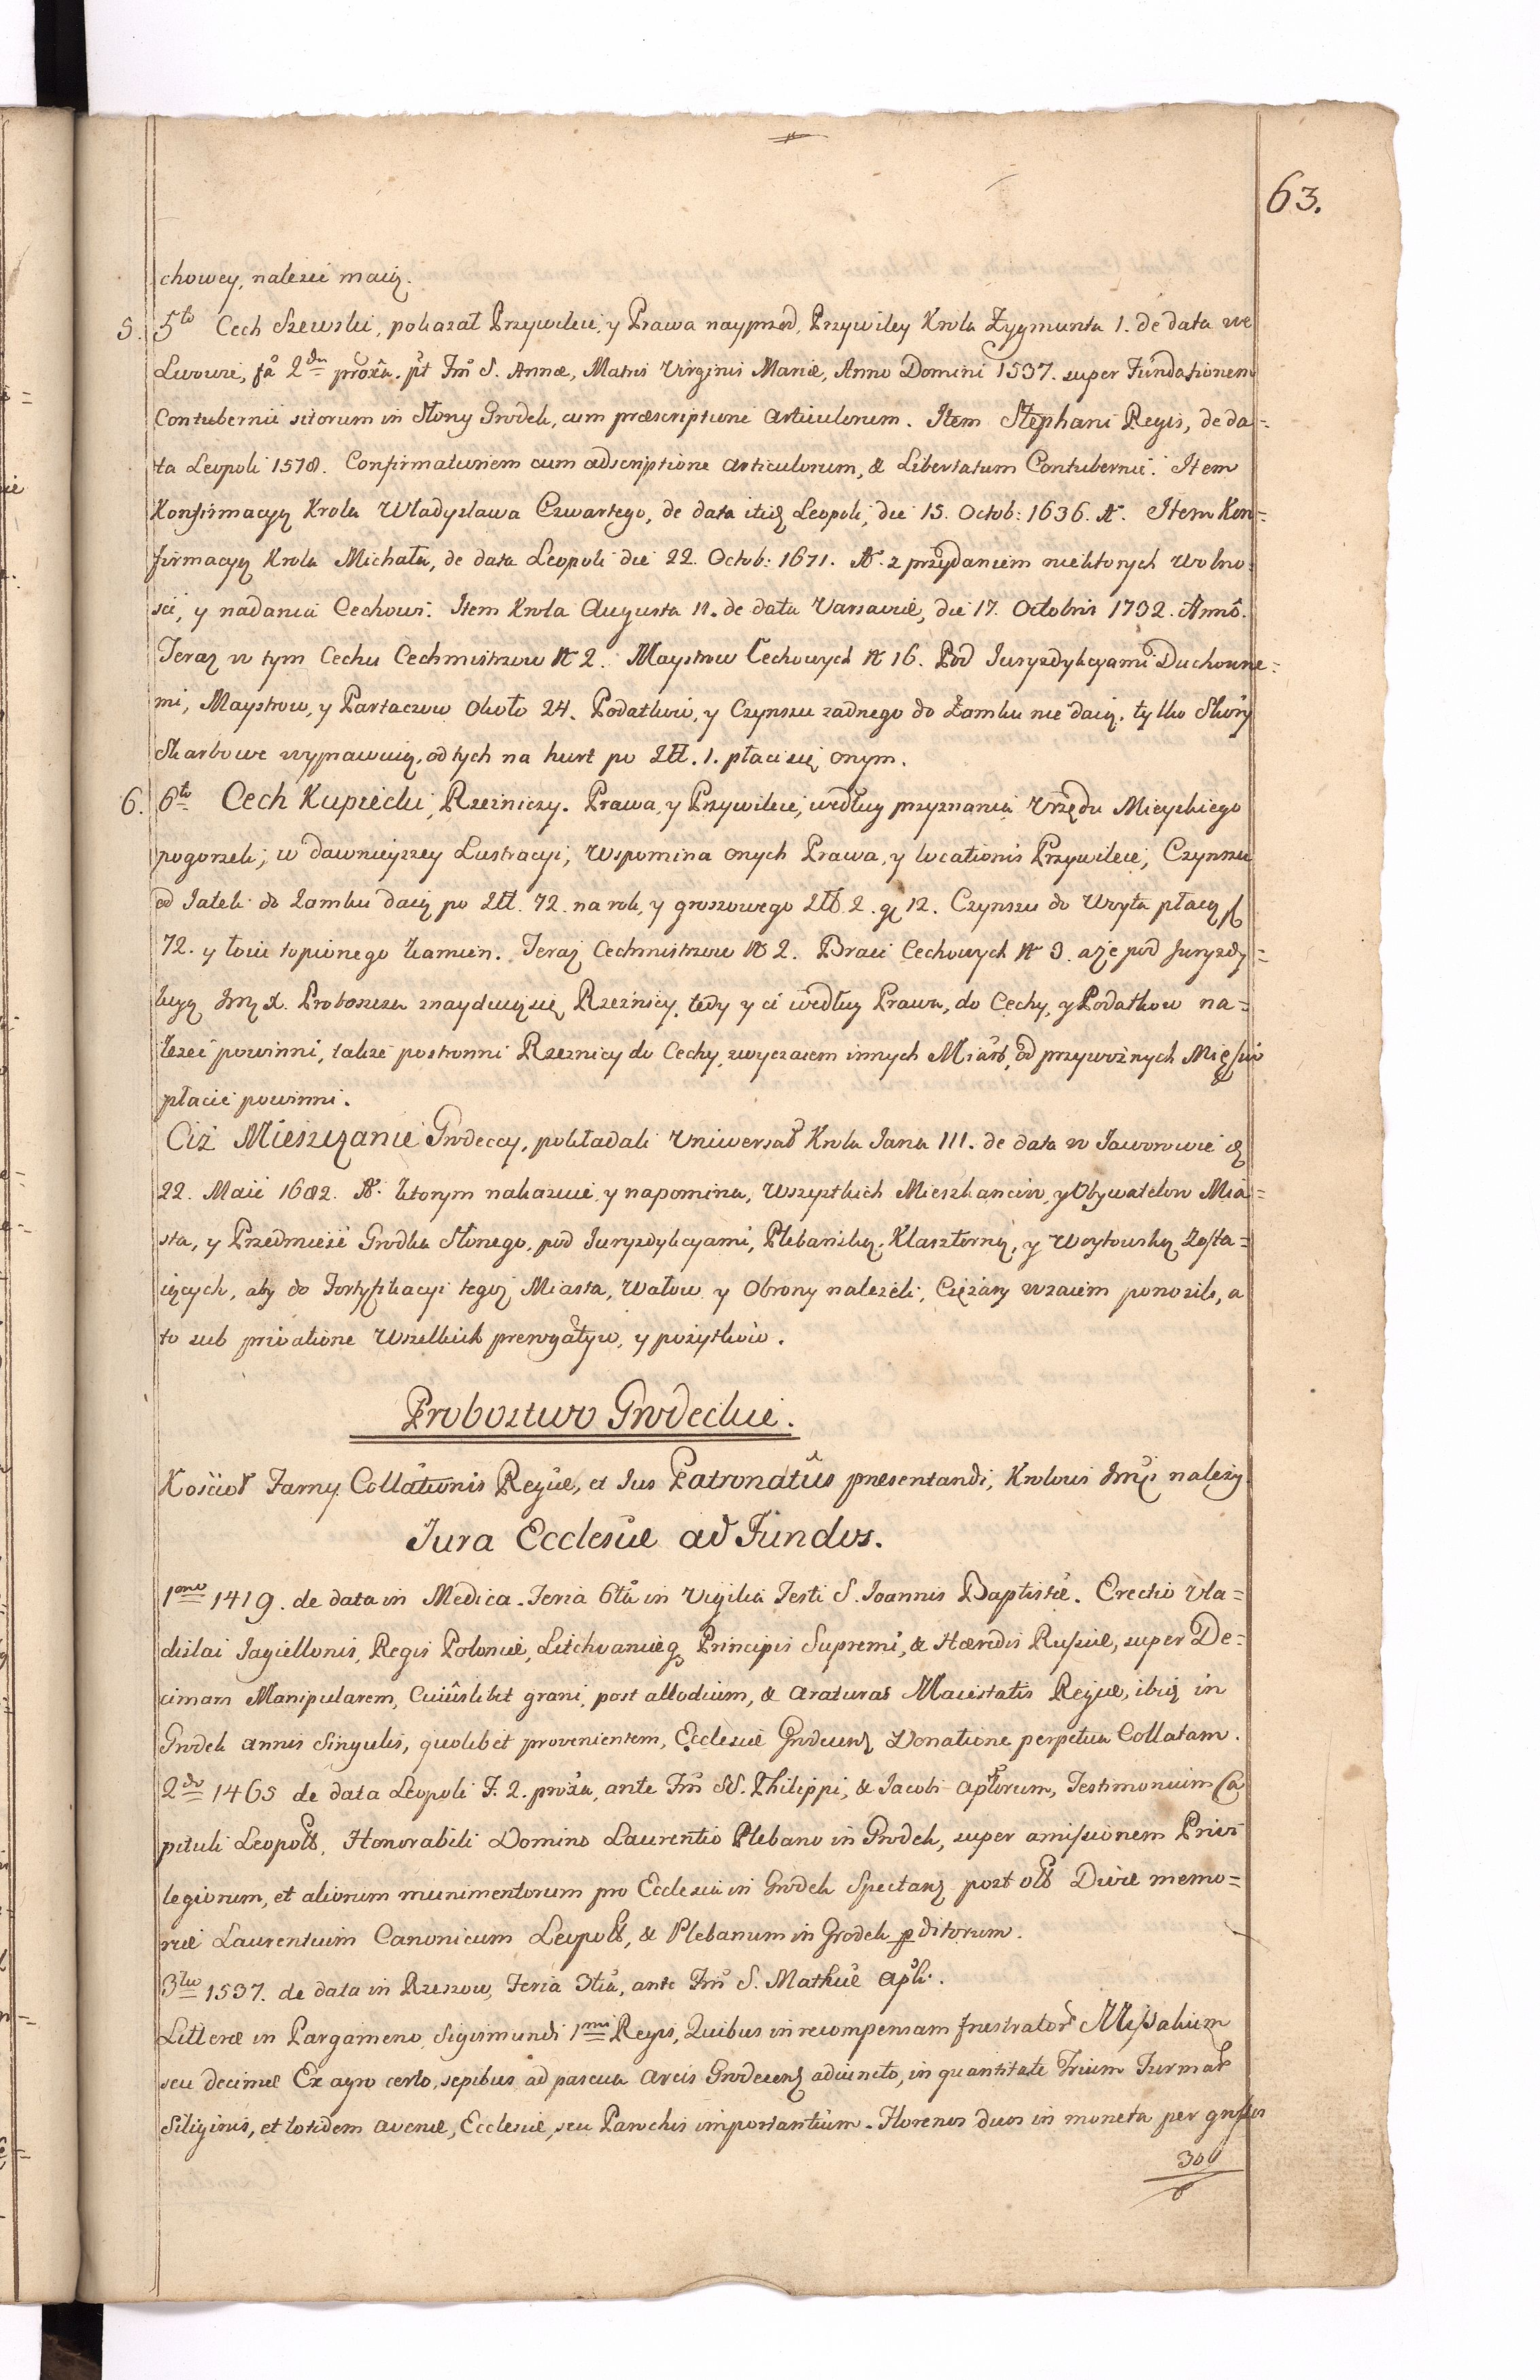 63.
chowey, należeć maią.
5. 5to Cech Szewski, pokazał Przywileie, y Prawa nayprzod, Przywiley Krola Zygmunta 1. de data we
Lwowie, fa 2da proxa. pt Fm S. Annæ, Matris Virginis Mariæ, Anno Domini 1537. super Fundationem
Contubernii sitorum in Słony Grodek, cum præscriptione articulorum. Item Stephani Regis, de da=
ta Leopoli 1578. Confirmationem cum adscriptione articulorum, & Libertatum Contubernii. Item
Konfirmacyą Krola Władysława Czwartego, de data itidę Leopoli, die 15. Octob: 1636. A. Item Kon=
firmacyą Krola Michała, de data Leopoli die 22. Octob: 1671. A. z przydaniem niektorych wolno:
sci, y nadania Cechowi. Item Krola Augusta II. de data Varsaviæ, die 17. Octobris 1732. Anno.
Teraz w tym Cechu Cechmistrzow N 2. Maystrow Cechowych N 16. Pod Iuryzdykcyami Duchowne=
mi, Maystrow, y Partaczow około 24. Podatkow, y Czynszu żadnego do Zamku nie daią, tylko Skory
Skarbowe wyprawuią, od tych na hurt po Złł. 1. płaci się onym.
6. 6to Cech Kupiecki, Rzeźniczy. Prawa, y Przywileie, według przyznania Urzędu Mieyskiego
pogorzeli, w dawnieyszey Lustracyi, Wspomina onych Prawa, y locationis Przywileie, Czynszu
od Jatek do Zamku daią po Złł. 72. na rok, y groszowego Złł 2. gr 12. Czynszu do Woyta płacą fl
72. y łoiu topionego kamien. Teraz Cechmistrzow N 2. Braci Cechowych N 3. aże pod Juryzdy=
kcyą Jmę X. Proboszcza znayduią się Rzeźnicy, tedy y ci według Prawa, do Cechy, y Podatkow na=
leżeć powinni, także postronni Rzeznicy do Cechy, zwyczaiem innych Miast, od przywoźnych Mięsiw
płacić powinni.
Ciż Mieszczanie Grodeccy, pokładali Uniwersał Krola Jana III. de data w Jaworowie d
22. Maii 1682. A. ktorym nakazuie, y napomina, wszystkich Mieszkancow, y Obywatelow Mia=
sta, y Przedmieść Grodka Słonego, pod Iuryzdykcyami, Plebańską, Klasztorną, y Woytowską Zosta=
iących, aby do Fortyfikacyi tegoż Miasta, Wałow y Obrony należeli, Ciężary wzaiem ponosili, a
to sub privatione Wszelkich prerogatyw, y pożytkow.
Probostwo Grodeckie.
Kościoł Farny Collationis Regiæ, et Ius Patronatus præsentandi, Krolowi Jmći należy.
Jura Ecclesiæ ad Fundos.
1mo 1419. de data in Medica. Feria 6ta in Vigilia Festi S. Joannis Baptistæ. Erectio Vla=
dislai Jagiellonis, Regis Poloniæ, Litthvaniæq Principis Supremi, & Hæredis Russiæ, super De=
cimam Manipularem, Cuiuslibet grani, post allodium, & araturas Maiestatis Regiæ, ibidę in
Grodek annis Singulis, quolibet provenientem, Ecclesiæ Grodecens Donatione perpetua Collatam.
2do 1465 de data Leopoli F. 2. proxa, ante Fm SS. Philippi, & Jacobi Aplorum, Testimonium Ca
pituli Leopol, Honorabili Domino Laurentio Plebano in Grodek, super amissionem Privi
legiorum, et aliorum munimentorum pro Ecclesia in Grodek Spectanę post ob Divæ memo=
riæ Laurentium Canonicum Leopol, & Plebanum in Grodek pditorum.
3tio 1537. de data in Rzeszow, Feria 3tia, ante Fm S. Mathiæ Apli.
Litteræ in Pargameno Sigismundi 1mi Regis, Quibus in recompensam frustrator Missalium
seu decimæ Ex agro certo, sepibus ad pascua Arcis Grodecens adiuncto, in quantitate Trium Turmar
Siliginis, et totidem avenæ, Ecclesiæ, seu Parochis importantium. Florenos duos in moneta per grossos
300